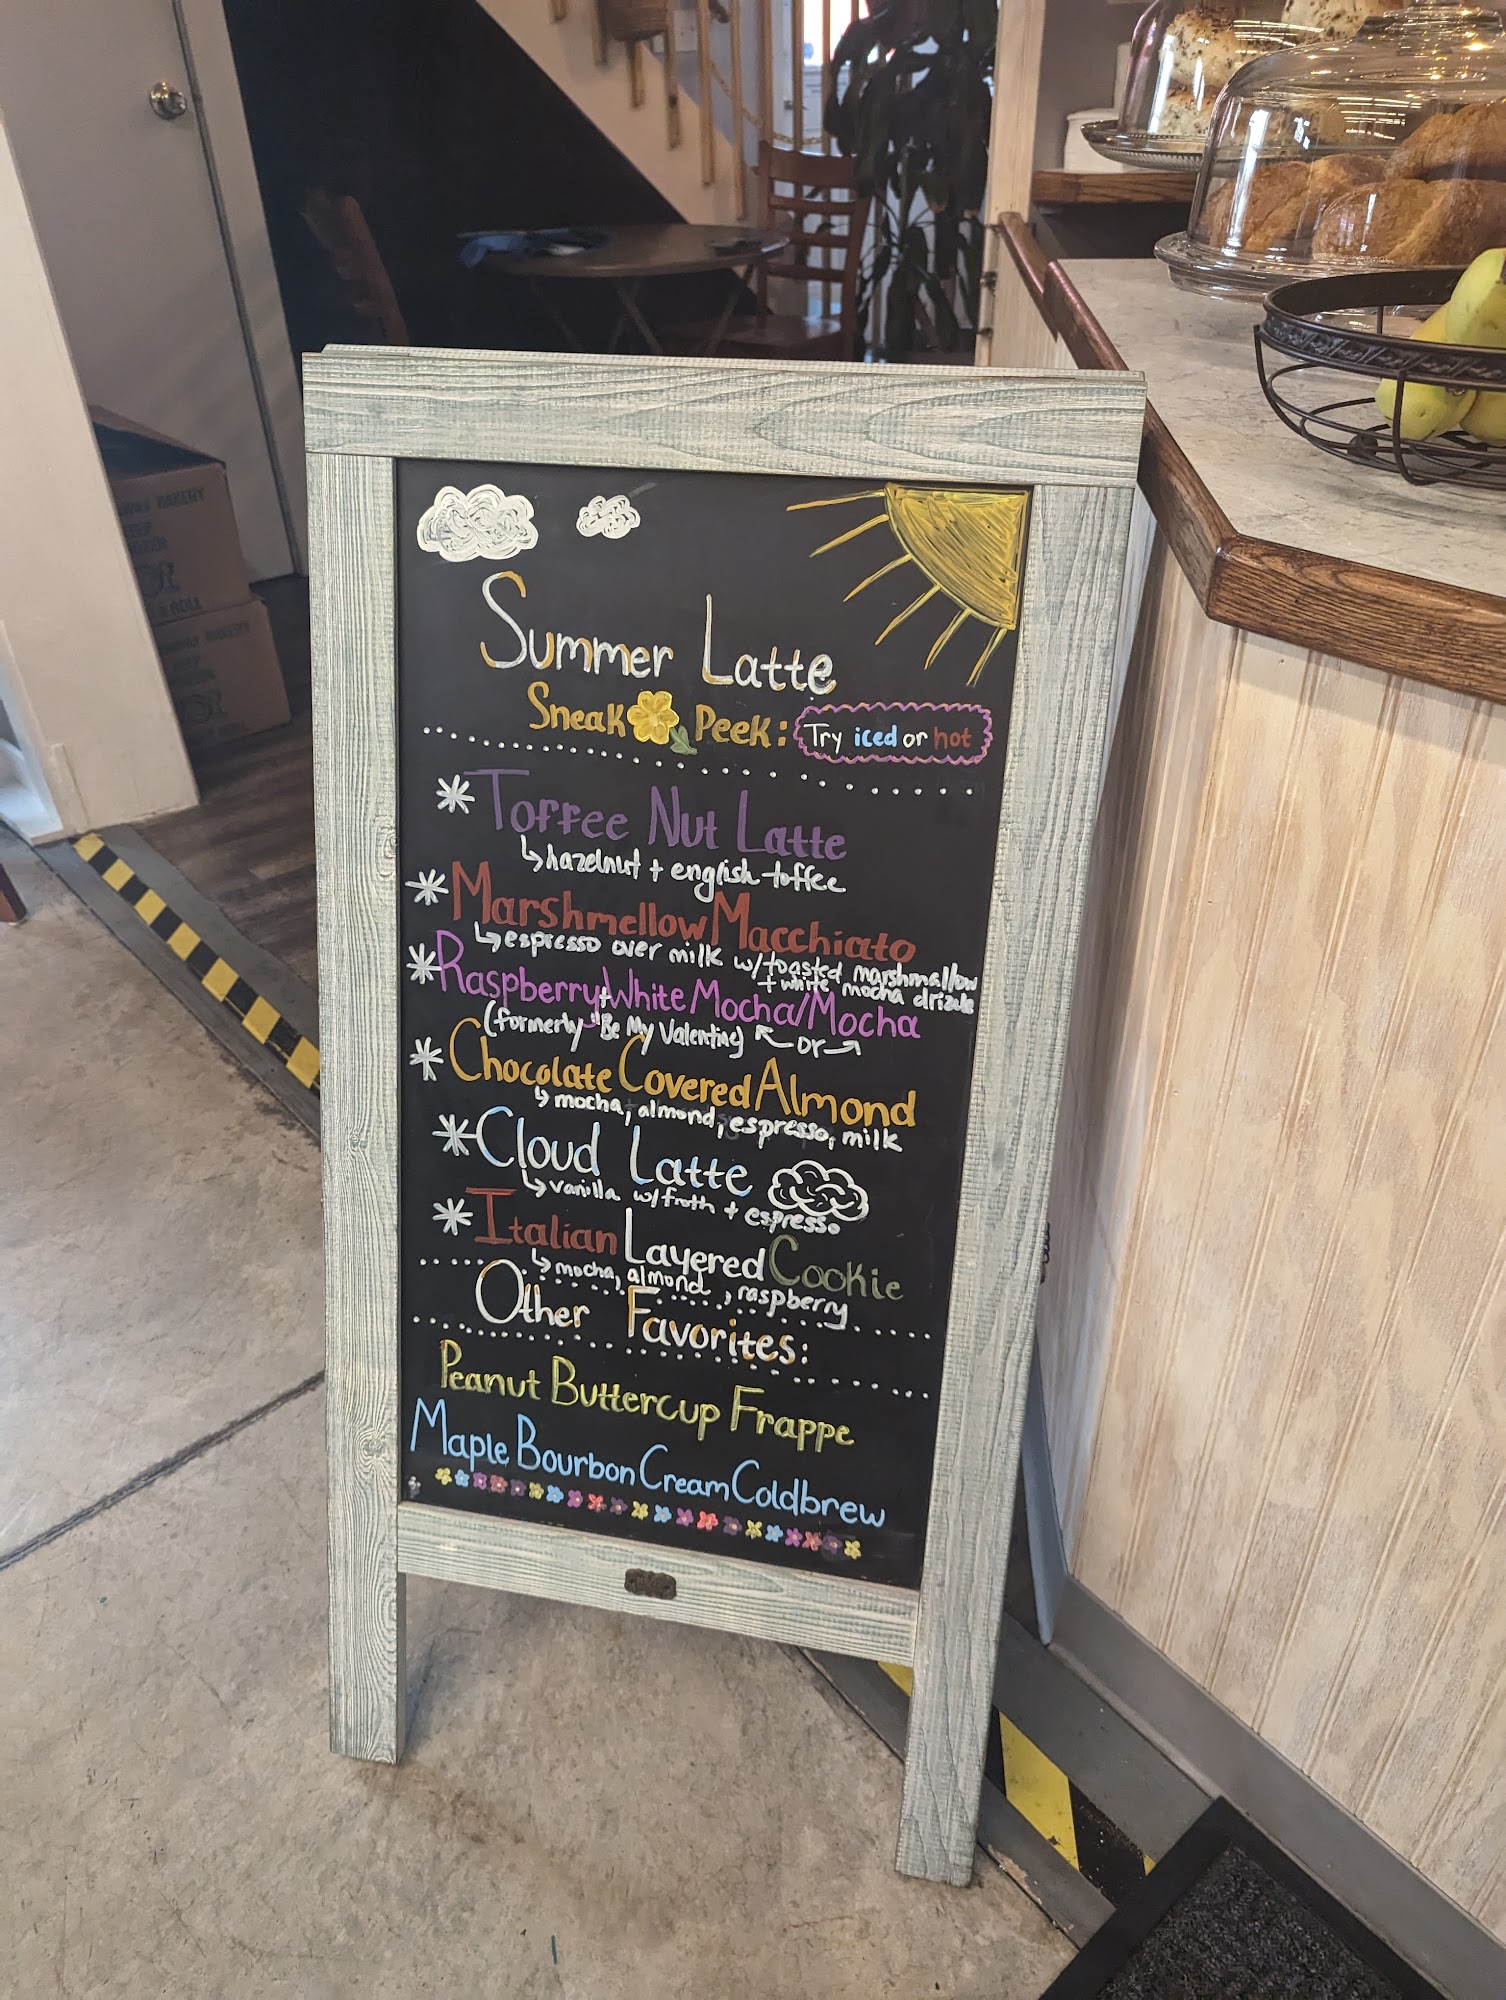 Summer Latte
Sneak Peek: Try iced or hot
Toffee Nut Latte
hazelnut + english toffee
Marshmellow Macchiato
espresso over milk w/toasted marshmallow
+ white mocha drizzle
Raspberry + White Mocha/Mocha
(formerly "Be My Valentine) or
Chocolate Covered Almond
mocha, almond, espresso, milk
Cloud Latte
vanilla w/froth + espresso
Italian Layered Cookie
mocha, almond, raspberry
Other Favorites:
Peanut Buttercup Frappe
Maple Bourbon Cream Coldbrew
BAKERY
ROLL
BAKERY